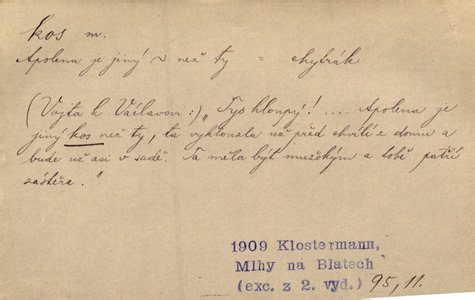 kos m.
Apolena je jiný ~ než ty = chytrák
(Vojta k Václavovi:) „Tys hloupý! .... Apolena je
jiný kos než ty, ta vyklouzla už před chvílí z domu a
bude už asi v sadě. Ta měla být mužským a tobě patří
zástěra."
1909 Klostermann,
Mlhy na Blatech
(exc. z 2. vyd.) 95, 11.